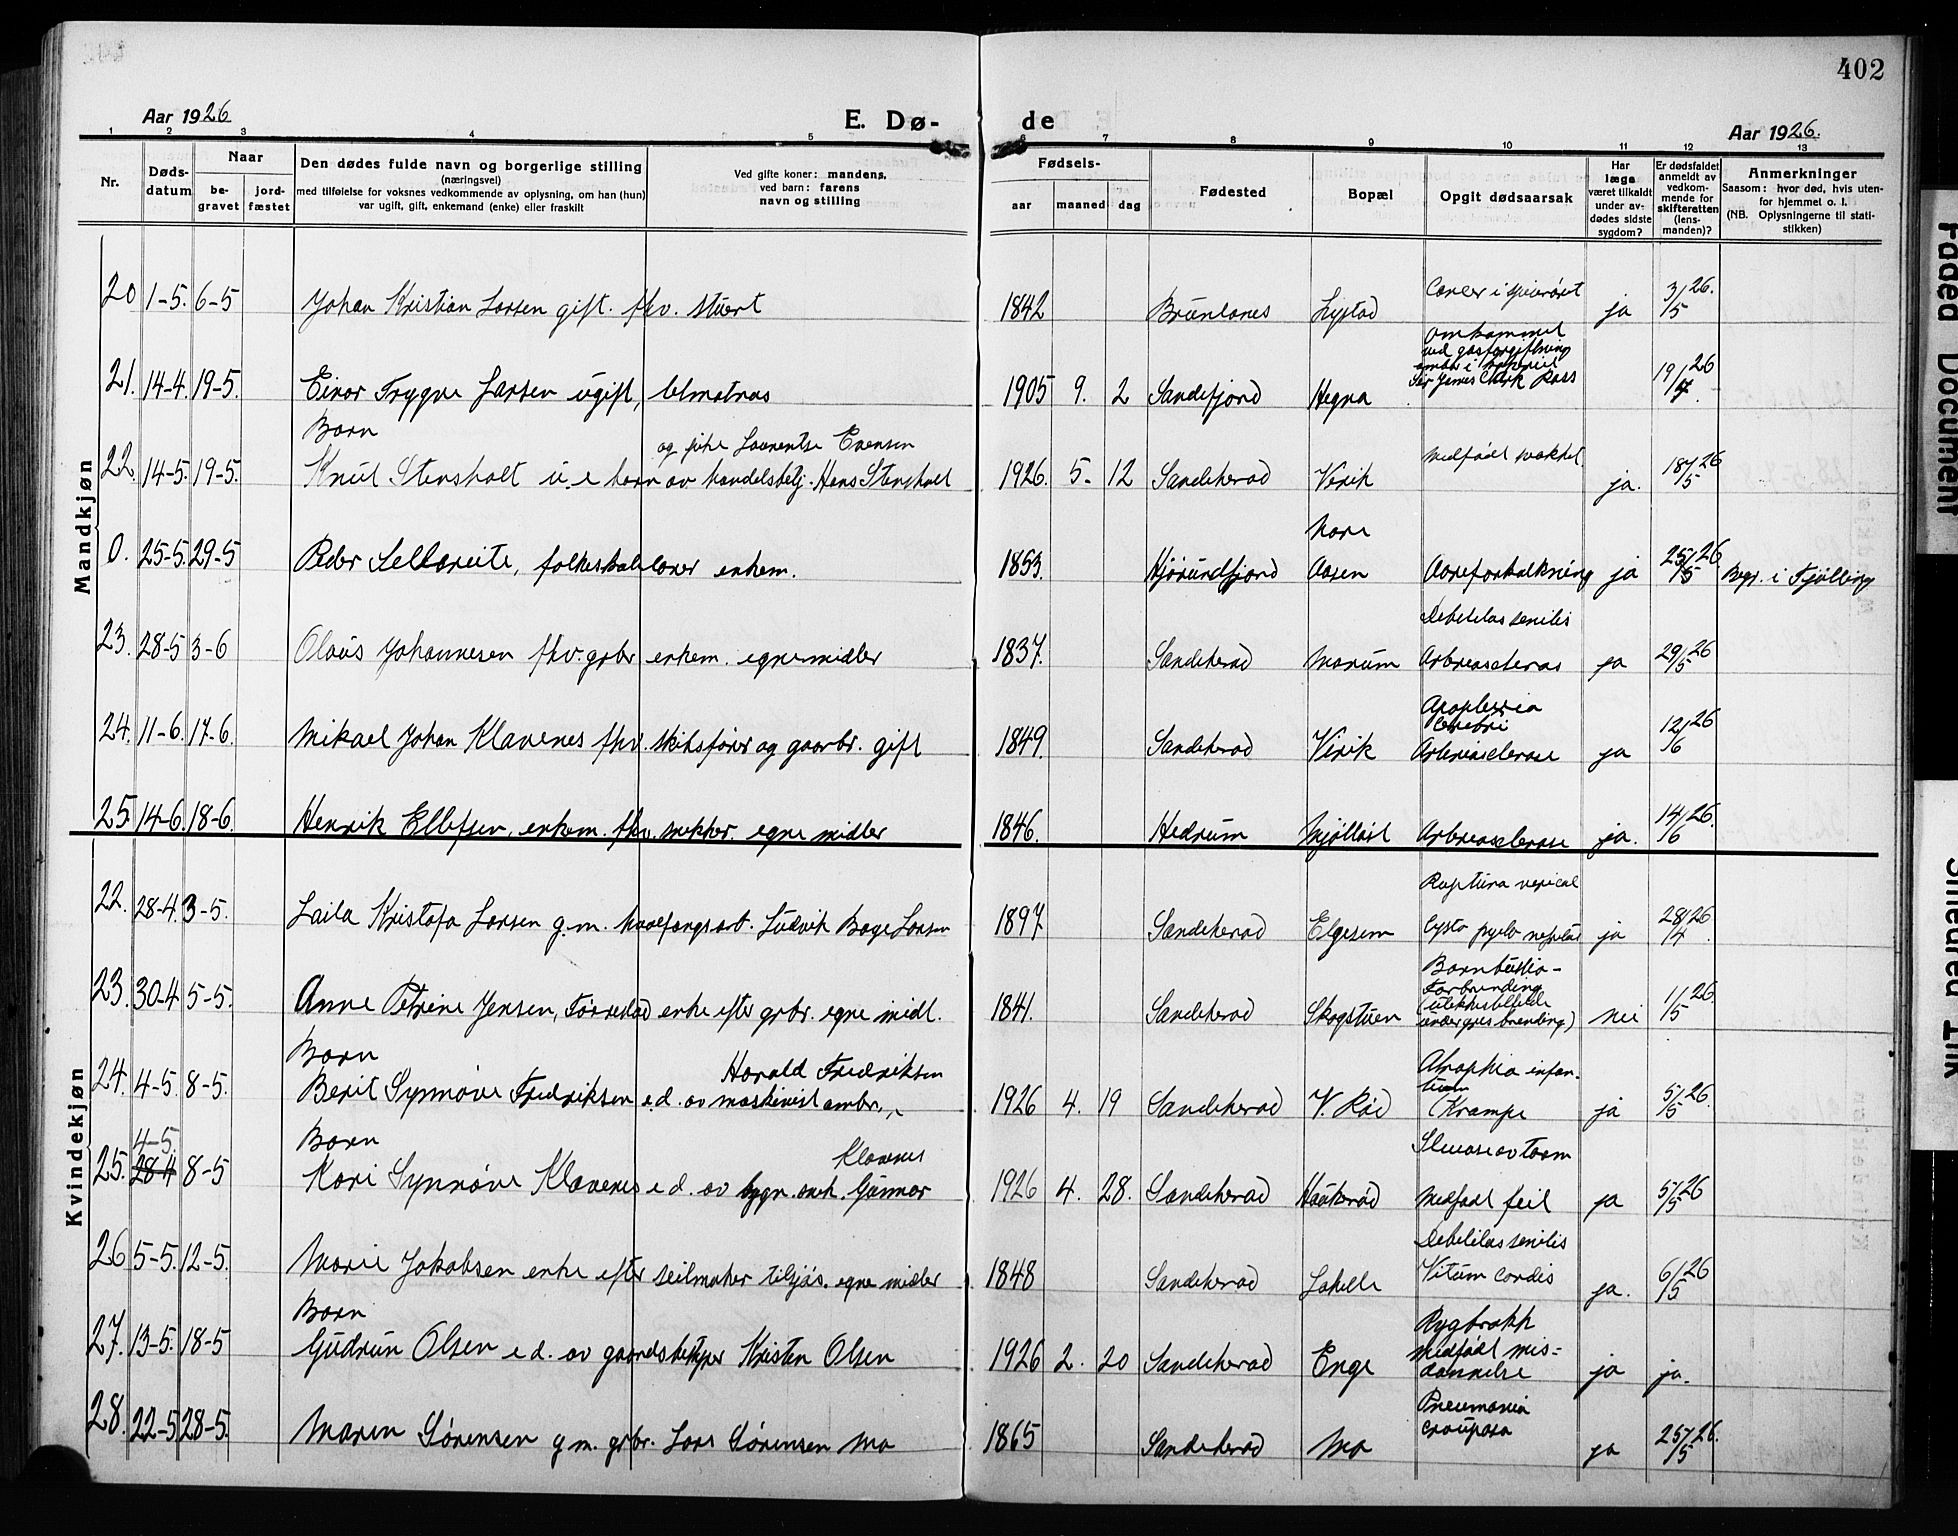 402
Aar 1926
E. Dø-
de
Aar 1926.
1 2 3 4 5 6 7 8 9 10 11 12 13
Nr.
Døds-
datum
Naar
be-
gravet
jord-
fæstet
Den dødes fulde navn og borgerlige stilling
(næringsvei)
med tilføielse for voksnes vedkommende av oplysning, om han (hun)
var ugift, gift, enkemand (enke) eller fraskilt
Ved gifte koner: mandens,
ved barn: farens
navn og stilling
Fødsels-
aar
maaned
dag
Fødested
Bopæl
Opgit dødsaarsak
Har
læge
været tilkaldt
under av-
dødes sidste
sygdom?
Er dødsfaldet
anmeldt av
vedkom-
mende for
skifteretten
(lens-
manden)?
Anmerkninger
Saasom: hvor død, hvis uten-
for hjemmet o. l.
(NB. Oplysningerne til stati-
stikken)
Mandkjøn
20 1-5. 6-5 Johan Kristian Larsen gift. fhv. stuert 1842 Brunlanes Lystad Cancer i spiserøret ja 3/5 26.
21. 14-4. 19-5. Einar Trygve Larsen ugift, 1905 9. 2 Sandefjord Hegna omkommet
ved gasforgiftning
ombord i kokeriet
Sir James Clark Ross 19/4 26
Barn
og pike Laurentse Evensen
22. 14-5. 19-5. Knut Stensholt u. e barn av handelsbetj. Hans Stensholt 1926. 5- 12 Sandeherad Virik medfødt svakhet. ja. 18/5 26
0. 25-5. 29-5 Peder Sellereite, folkeskolelærer enkem. 1853. Hjørundfjord Nore
Aasen Aareforkalkning ja 25/5 26 Begr. i Tjølling
23. 28-5 3-6 Olaus Johannesen fhv. grbr enkem. egne midler 1837. Sandeherad Marum Debilitas senilis
Arteriosclerose ja 29/5 26
24. 11-6. 17-6. Mikael Johan Klavenes fhv. skibsfører og gaarbr. gift 1849. Sandeherad Virik Apoplexia
Cerebri
Arteriosclerose ja 12/6 26
25. 14-6. 18-6. Henrik Ellefsen, enkem. fhv. snekker. egne midler 1846. Hedrum Mjølløst Arteriosclerose ja. 14/6 26.
Kvindekjøn
22. 28-4. 3-5. Laila Kristofa Larsen g. m. hvalfangsarb. Ludvik Bage Larsen 1897 Sandeherad Elgesem Ruptura vesical
Cysto pyelo nefrit ja 28/4 26
23. 30-4. 5-5. Anne Petrine Jensen, Førrestad enke efter grbr. egne midl. 1841. Sandeherad Skogstuen Forbrending
(ulykkestilfelde
under gres brending) nei 1/5 26.
Barn
Harald Fredriksen
24. 4-5. 8-5. Berit Synnøve Fredriksen e. d. av maskinist ambr. 1926 4. 19 Sandeherad V. Rød Atrophia infan-
tum
(Krampe ja 5/5 26.
Barn
4-5.
Klavenes
25. 28-4 8-5 Kari Synnøve Klavenes e d. av bygn. snek. Gunnar 1926 4. 28. Sandeherad Haukerød Stenose av tarm
medfødt feil ja 5/5 26
26 5-5. 12-5. Marie Jakobsen enke efter seilmaker tilsjøs. egne midler 1848 Sandeherad Debilitas senilis
Vitium cordis ja. 6/5 26
Barn
27. 13-5. 18-5 Gudrun Olsen e d. av gaardsbestyrer Kristen Olsen 1926 2. 20 Sandeherad Enge Rygbrokk
medfødt mis-
dannelse ja ja.
28. 22-5 28-5. Maren Sørensen g m. grbr. Lars Sørensen Mo 1865 Sandeherad Mo Pneumonia
crouposa ja 25/5 26.
Faded Document
Smeared Ink